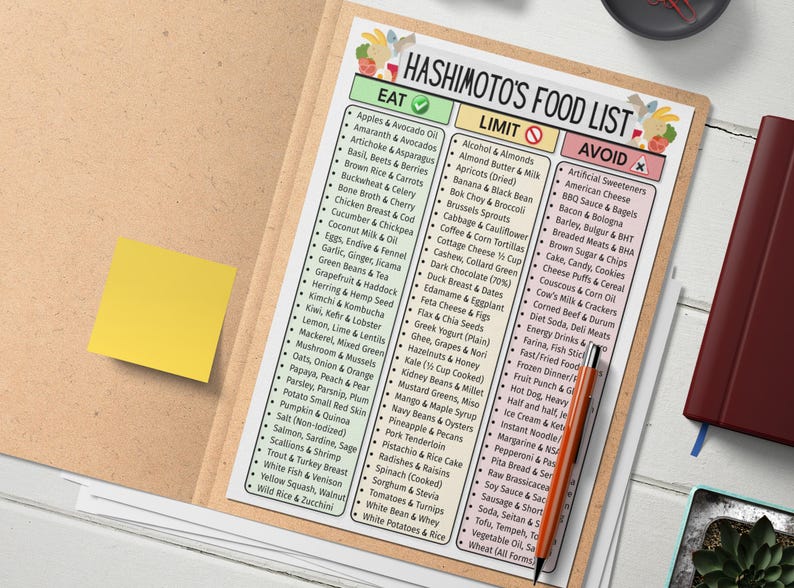 HASHIMOTO'S FOOD LIST
EAT
Apples & Avocado Oil
Amaranth & Avocados
Artichoke & Asparagus
Basil, Beets & Berries
Brown Rice & Carrots
Buckwheat & Celery
Bone Broth & Cherry
Chicken Breast & Cod
Cucumber & Chickpea
Coconut Milk & Oil
Eggs, Endive & Fennel
Garlic, Ginger, Jicama
Green Beans & Tea
Grapefruit & Haddock
Herring & Hemp Seed
Kimchi & Kombucha
Kiwi, Kefir & Lobster
Lemon, Lime & Lentils
Mackerel, Mixed Green
Mushroom & Mussels
Oats, Onion & Orange
Papaya, Peach & Pear
Parsley, Parsnip, Plum
Potato Small Red Skin
Pumpkin & Quinoa
Salt (Non-Iodized)
Salmon, Sardine, Sage
Scallions & Shrimp
Trout & Turkey Breast
White Fish & Venison
Yellow Squash, Walnut
Wild Rice & Zucchini
LIMIT
Alcohol & Almonds
Almond Butter & Milk
Apricots (Dried)
Banana & Black Bean
Bok Choy & Broccoli
Brussels Sprouts
Cabbage & Cauliflower
Coffee & Corn Tortillas
Cottage Cheese ½ Cup
Cashew, Collard Green
Dark Chocolate (70%)
Duck Breast & Dates
Edamame & Eggplant
Feta Cheese & Figs
Flax & Chia Seeds
Greek Yogurt (Plain)
Ghee, Grapes & Nori
Hazelnuts & Honey
Kale (½ Cup Cooked)
Kidney Beans & Millet
Mustard Greens, Miso
Mango & Maple Syrup
Navy Beans & Oysters
Pineapple & Pecans
Pork Tenderloin
Pistachio & Rice Cake
Radishes & Raisins
Spinach (Cooked)
Sorghum & Stevia
Tomatoes & Turnips
White Bean & Whey
White Potatoes & Rice
AVOID
Artificial Sweeteners
American Cheese
BBQ Sauce & Bagels
Bacon & Bologna
Barley, Bulgur & BHT
Breaded Meats & BHA
Brown Sugar & Chips
Cake, Candy, Cookies
Cheese Puffs & Cereal
Couscous & Corn Oil
Cow's Milk & Crackers
Corned Beef & Durum
Diet Soda, Deli Meats
Energy Drinks &
Farina, Fish
Fast/Fried
Frozen
Fruit Punch &
Hot Dog,
Half and half,
Ice Cream &
Instant
Margarine &
Pepperoni &
Pita Bread &
Raw
Soy Sauce &
Sausage &
Soda, Seitan &
Tofu, Tempeh,
Vegetable Oil,
Wheat (All Forms)